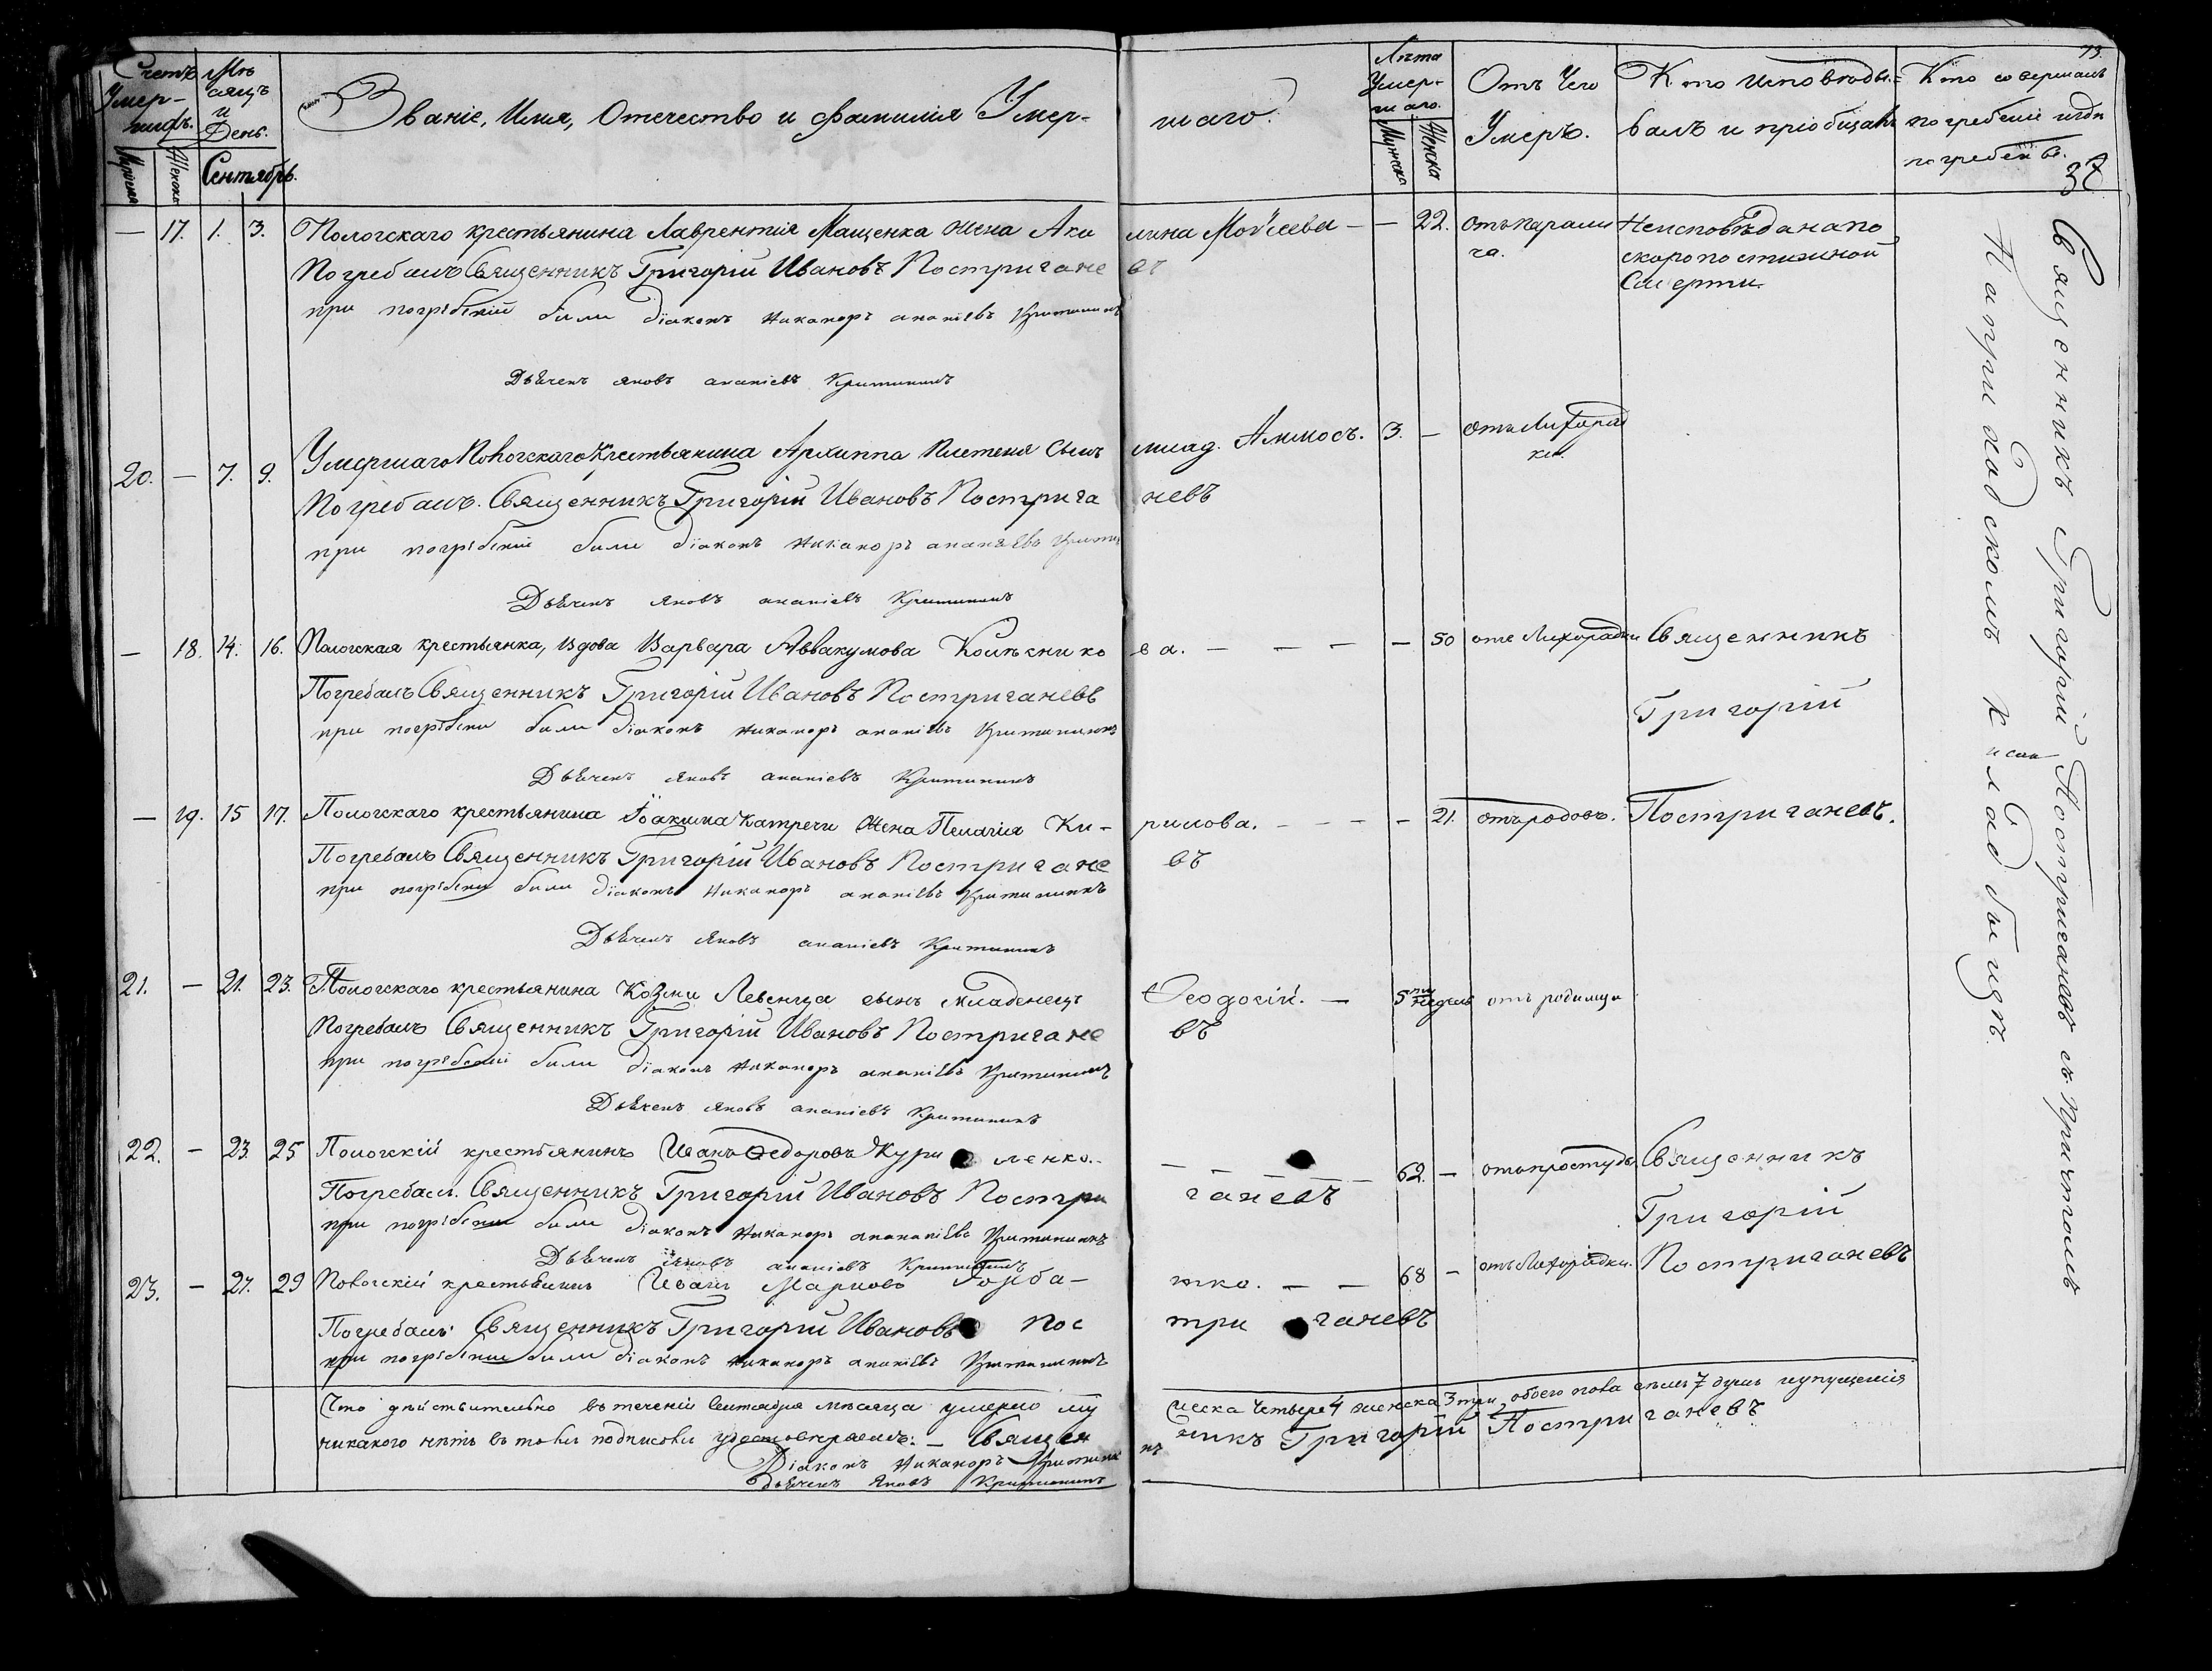 Счетъ Умер-шихъ.
Мѣсяцъ и День.
Званіе, Имя, Отечество и Фамилія Умер-шаго.
Лѣта Умер-шаго.
Отъ Чего Умеръ.
Кто исповѣды-валъ и пріобщалъ
Кто совершалъ погребеніе и гдѣ погребены.
73.
38
Мужеска
Женска
Сентябрь.
Мужеска
Женска
— 17. 1. 3. Пологскаго крестьянина Лаврентія Мащенка жена Аки лина Моѵсеева — — 22. отъ парали ча. Неисповѣдана по скоропостижной Смерти.
Погребалъ Священникъ Григорій Ивановъ Постригане въ
при погрѣбеніи були діаконъ Никаноръ ананіевъ Критининъ
Дьячекъ яковъ ананіевъ Критининъ
20. — 7. 9. Умершаго Пологскаго Крестьянина Архиппа Плетеня Сынъ млад. Аммосъ. 3. — отъ Лихорад ки.
Погребалъ. Священникъ Григорій Ивановъ Пострига невъ
при погрѣбеніи були діаконъ Никаноръ ананіевъ
Дьячекъ яковъ ананіевъ Критининъ
— 18. 14. 16. Пологская крестьянка, вдова Варвара Аввакумова Колѣснико ва. — — — — 50 отъ Лихорадки Священникъ
Погребалъ Священникъ Григорій Ивановъ Постриганевъ Григорій
при погрѣбеніи були діаконъ Никаноръ ананіевъ Критининъ
Дьячекъ яковъ ананіевъ Критининъ
— 19. 15 17. Пологскаго крестьянина Іоакима Катречи жена Пелагія Ки- рилова. — — — — 21. отъ родовъ. Постриганевъ.
Погребалъ Священникъ Григорій Ивановъ Постригане въ
при погрѣбеніи були діаконъ Никаноръ ананіевъ Критининъ
Дьячекъ яковъ ананіевъ Критининъ
21. — 21. 23. Пологскаго крестьянина Козми Левенца сынъ младенецъ Ѳеодосій. — 5ти недѣль отъ родимца
Погребалъ Священникъ Григорій Ивановъ Постригане въ
при погрѣбеніи були діаконъ Никаноръ ананіевъ Критининъ
Дьячекъ яковъ ананіевъ Критининъ
22. — 23. 25 Пологскій крестьянинъ Иванъ Ѳедоровъ Кури ленко. — — — — 62. — отъ простуды Священникъ
Погребалъ. Священникъ Григорій Ивановъ Постри ганевъ Григорій
при погрѣбеніи були діаконъ Никаноръ ананіевъ Критининъ
Дьячекъ яковъ ананіевъ Критининъ
23. — 27. 29 Пологскій крестьянинъ Иванъ Марковъ тко. — — 68 — отъ Лихорадки. Постриганевъ
Погребалъ Священникъ Григорій Ивановъ Пос три ганевъ
при погрѣбеніи були діаконъ Никаноръ ананіевъ Критининъ
Что дѣйствительно въ теченіи Сентября мѣсяца умерло му жеска четыре 4 женска 3 три, обоего пола всѣхъ 7 душъ и упущенія
никакого нѣтъ въ томъ подписомъ удостовѣряемъ: — Священ никъ Григорій Постриганевъ
Діаконъ Никаноръ Критини нъ
Дьячекъ Яковъ Критининъ
Священникъ Григорій Постриганевъ съ Причтомъ
На приходскомъ кладбищѣ